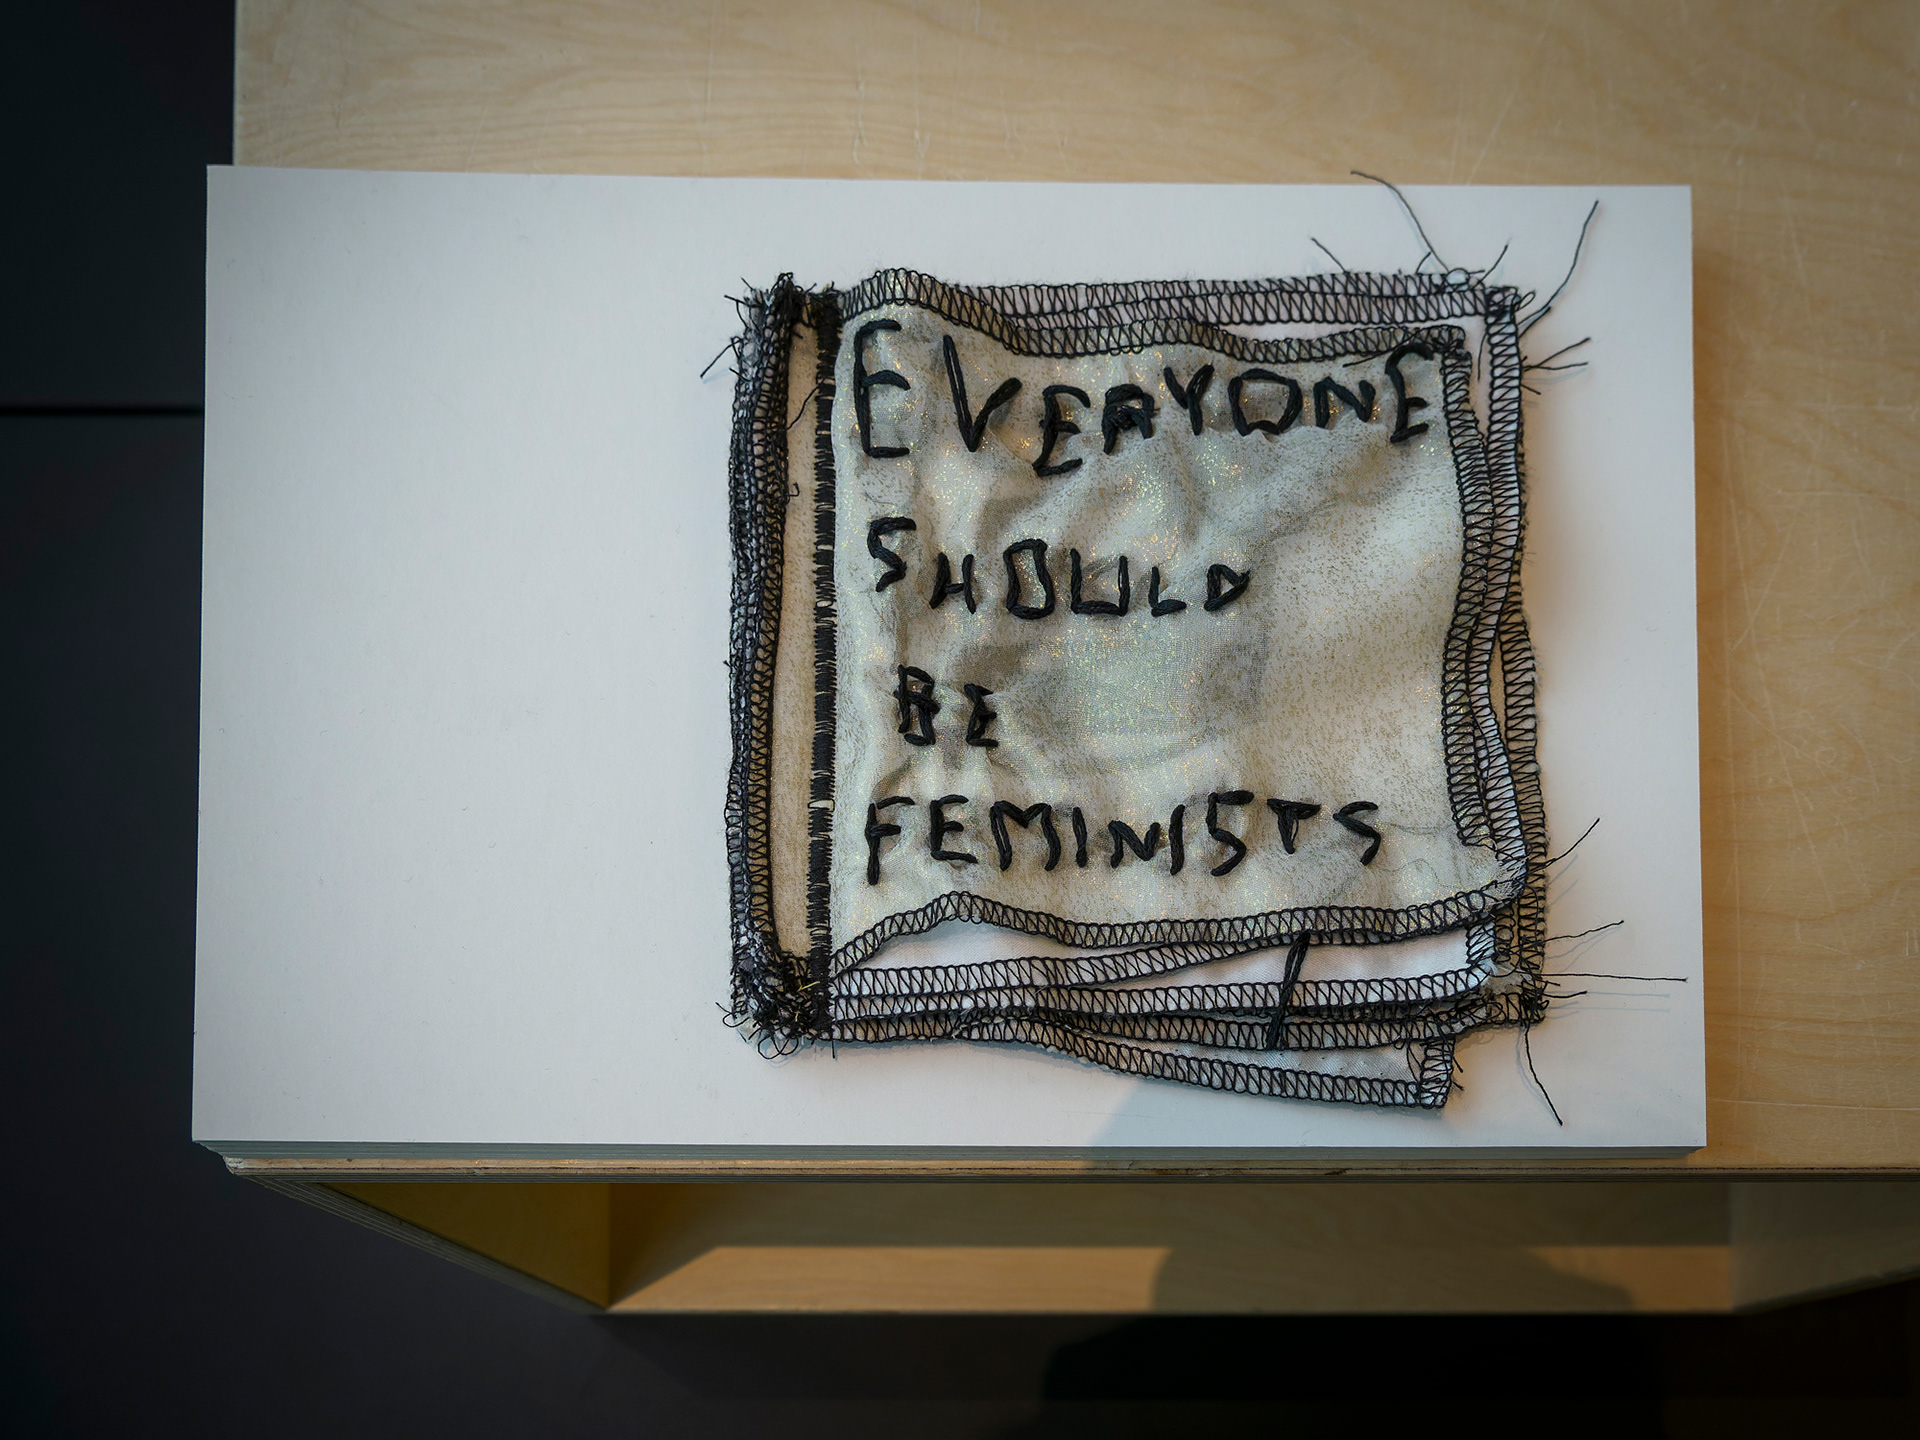 EVERYONE
SHOULD
BE
FEMINISTS